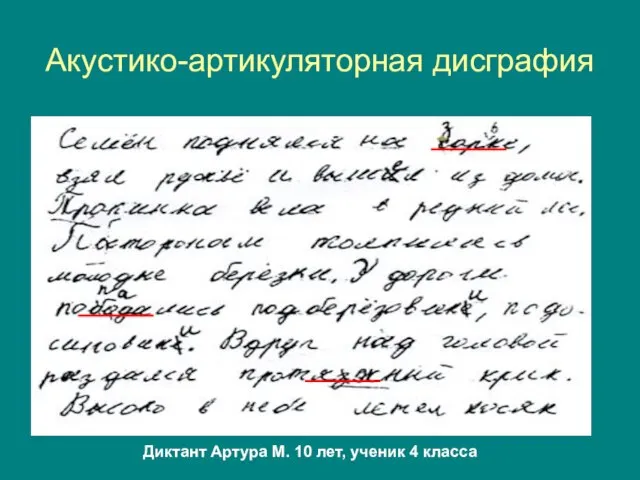 Акустико-артикуляторная дисграфия
Семён поднялся на
взял и из дома.
Тропинка вела в редкий лес.
толпились
молодые берёзки. У дороги
подберёзовики, подо-
синовики. Вдруг над головой
раздался крик.
Высоко в небе летел косяк
Диктант Артура М. 10 лет, ученик 4 класса